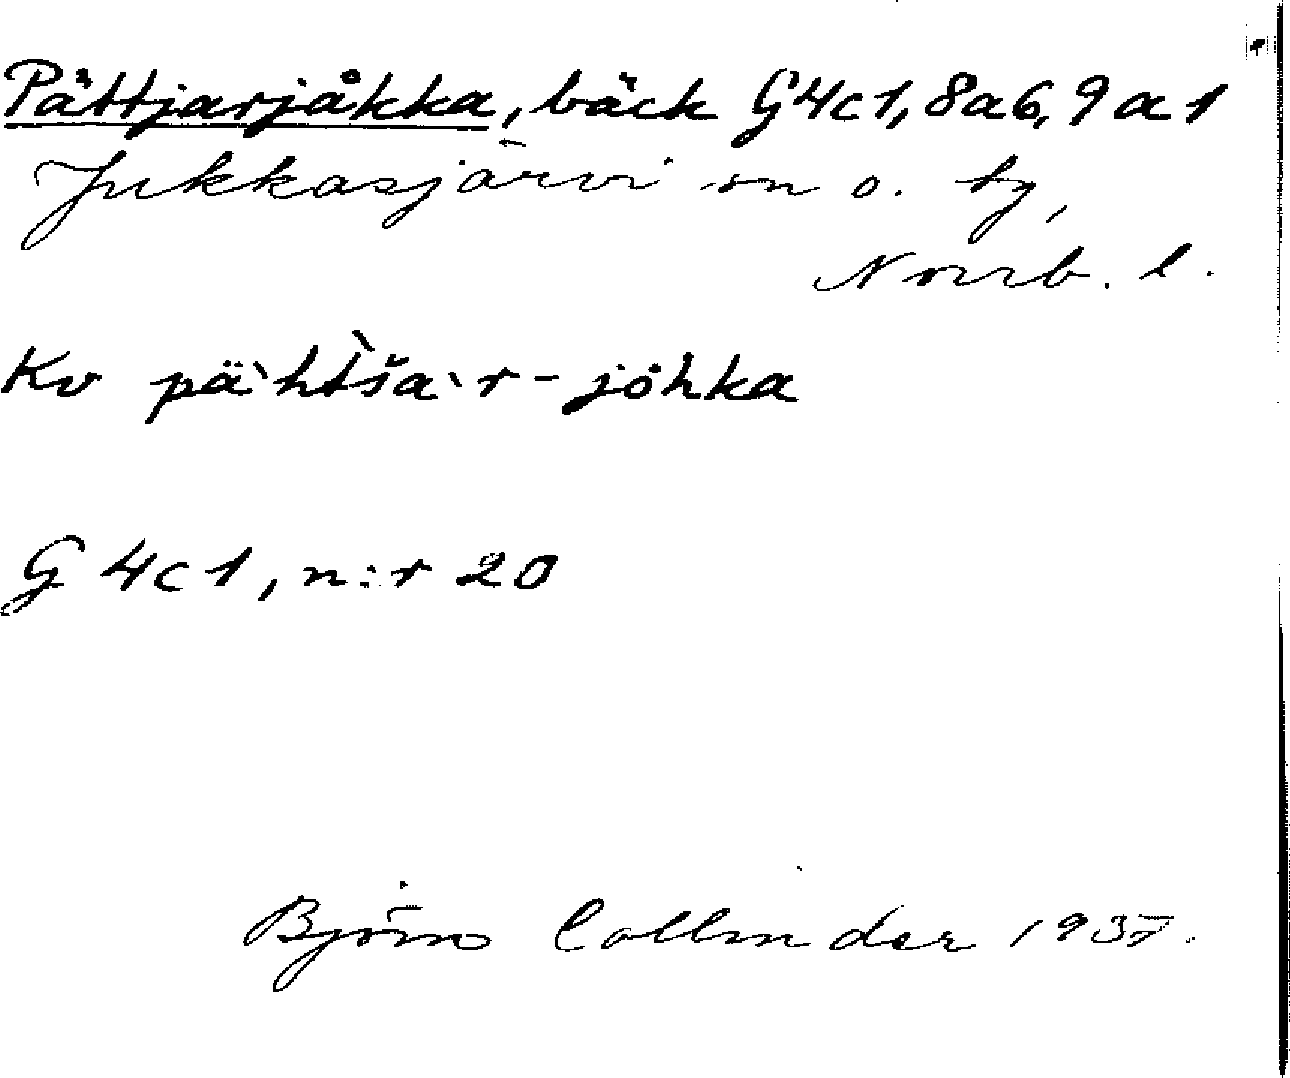 Pättjarjåkka, bäck G4c1, 8a6, 9a1
Jukkasjärvi sn o. tg,
Norrb. l.
Kv pä`htšà`r-jo̊hka
G 4c1, n:r 20
Björn Collinder 1937.